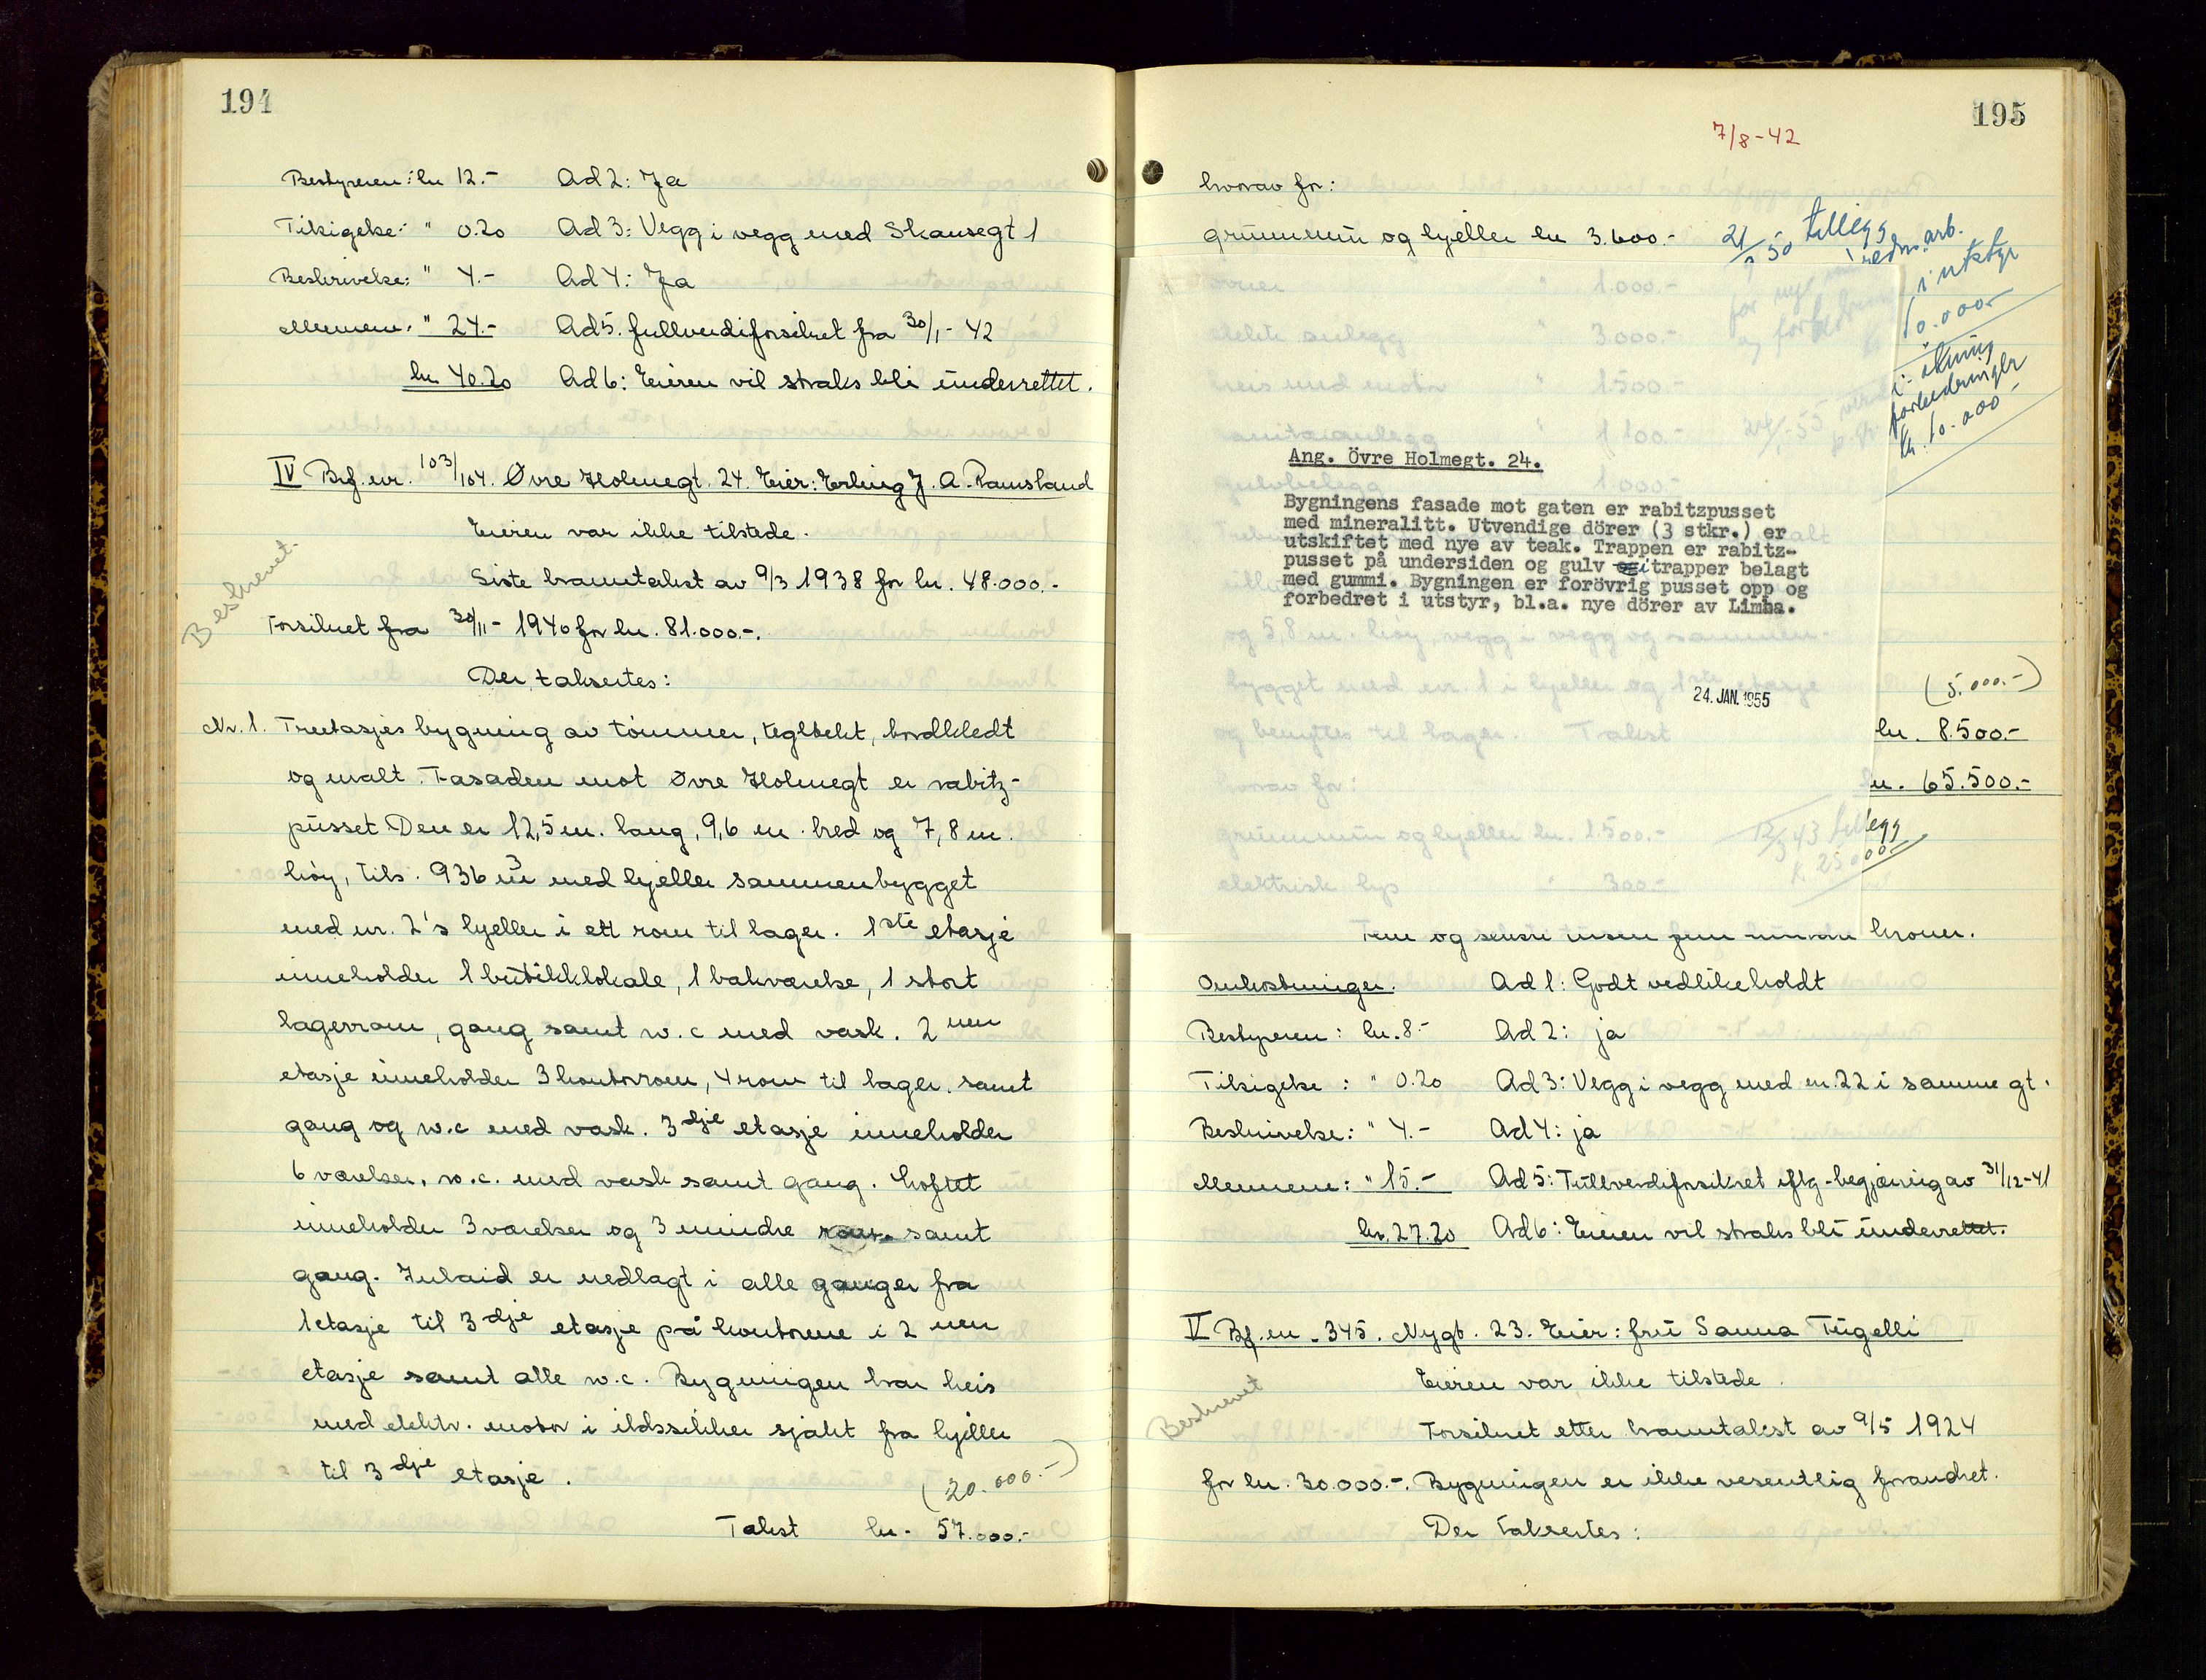 194
Bestyreren: kr 12.- Ad 2: Ja
Tilsigelse: " 0.20 Ad 3: Vegg i vegg med Skansegt 1
Beskrivelse: " 4.- Ad 4: Ja
Mennene: " 24.- Ad 5. fullverdiforsikret fra 30/1- 42
kr. 40.20 Ad 6: Eieren vil straks bli underrettet.
IV Brf. nr. 103/104. Øvre Holmegt. 24. Eier: Erling J. A. Ramsland
Eieren var ikke tilstede.
Beskrevet.
Siste branntakst av 9/3 1938 for kr. 48.000.-
Forsikret fra 30/11- 1940 for kr. 81.000.-.
Der takseres:
Nr. 1. Treetasjes bygning av tømmer, teglteket, bordkledt
og malt. Fasaden mot Øvre Holmegt er rabitz-
pusset Den er 12,5 m. lang, 9,6 m. bred og 7,8 m.
høy, tils. 936 m3 med kjeller sammenbygget
med nr. 2's kjeller i ett rom til lager. 1ste etasje
inneholder 1 butikklokale, 1 bakværelse, 1 stort
lagerrom, gang samt w.c med vask. 2nen
etasje inneholder 3 kontorrom, 4 rom til lager. samt
gang og w.c med vask. 3dje etasje inneholder
6 værelser, w.c. med vask samt gang. Loftet
inneholder 3 værelser og 3 mindre rom samt
gang. Inlaid er nedlagt i alle ganger fra
1 etasje til 3dje etasje på kontorene i 2nen
etasje samt alle w.c. Bygningen har heis
med elektr. motor i ildssikker sjakt fra kjeller
til 3dje etasje.
(20.000.-)
Takst kr. 57.000.-
195
7/8-42
hvorav for:
grunnmur og kjeller kr 3.600.-
21/9 50 tillegg
redns.arb.
i utstyr
10.000.-
ovner " 1.000.-
elektr. anlegg " 3.000.-
heis med motor " 1.500.-
sanitæranlegg " 1.100.-
gulvbelegg " 1.000.-
forbedringer
kr. 10.000
Ang. Övre Holmegt. 24.
Bygningens fasade mot gaten er rabitzpusset
med mineralitt. Utvendige dörer (3 stkr.) er
utskiftet med nye av teak. Trappen er rabitz-
pusset på undersiden og gulv i trapper belagt
med gummi. Bygningen er forövrig pusset opp og
forbedret i utstyr, bl.a. nye dörer av Limba.
og 5,8 m. høy, vegg i vegg og sammen-
bygget med nr. 1 i kjeller og 1ste etasje
24. JAN. 1955
(5.000.-)
og benyttes til lager. Takst kr. 8.500.-
hvorav for: kr. 65.500.-
grunnmur og kjeller kr. 1.500.-
12/3 43 tillegg
k. 25000.-
elektrisk lys " 300.-
Fem og seksti tusen fem hundre kroner.
Omkostninger. Ad 1: Godt vedlikeholdt
Bestyreren: kr. 8.- Ad 2: ja
Tilsigelse: " 0.20 Ad 3: Vegg i vegg med nr. 22 i samme gt.
Beskrivelse: " 4.- Ad 4: ja
Mennene: " 15.- Ad 5: Fullverdiforsikret iflg. begjæring av 31/12-41
kr. 27.20 Ad 6: Eieren vil straks bli underrettet.
V Bf. nr. 345. Nygt. 23. Eier: fru Sanna Tügelli
Eieren var ikke tilstede.
Beskrevet
Forsikret etter branntakst av 9/5 1924
for kr. 30.000.-. Bygningen er ikke vesentlig forandret.
Der takseres: